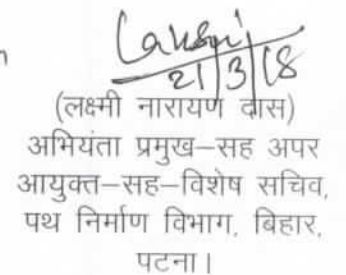 Lakshmi
21/3/18
(लक्ष्मी नारायण दास)
अभियंता प्रमुख–सह अपर
आयुक्त–सह–विशेष सचिव,
पथ निर्माण विभाग, बिहार,
पटना।